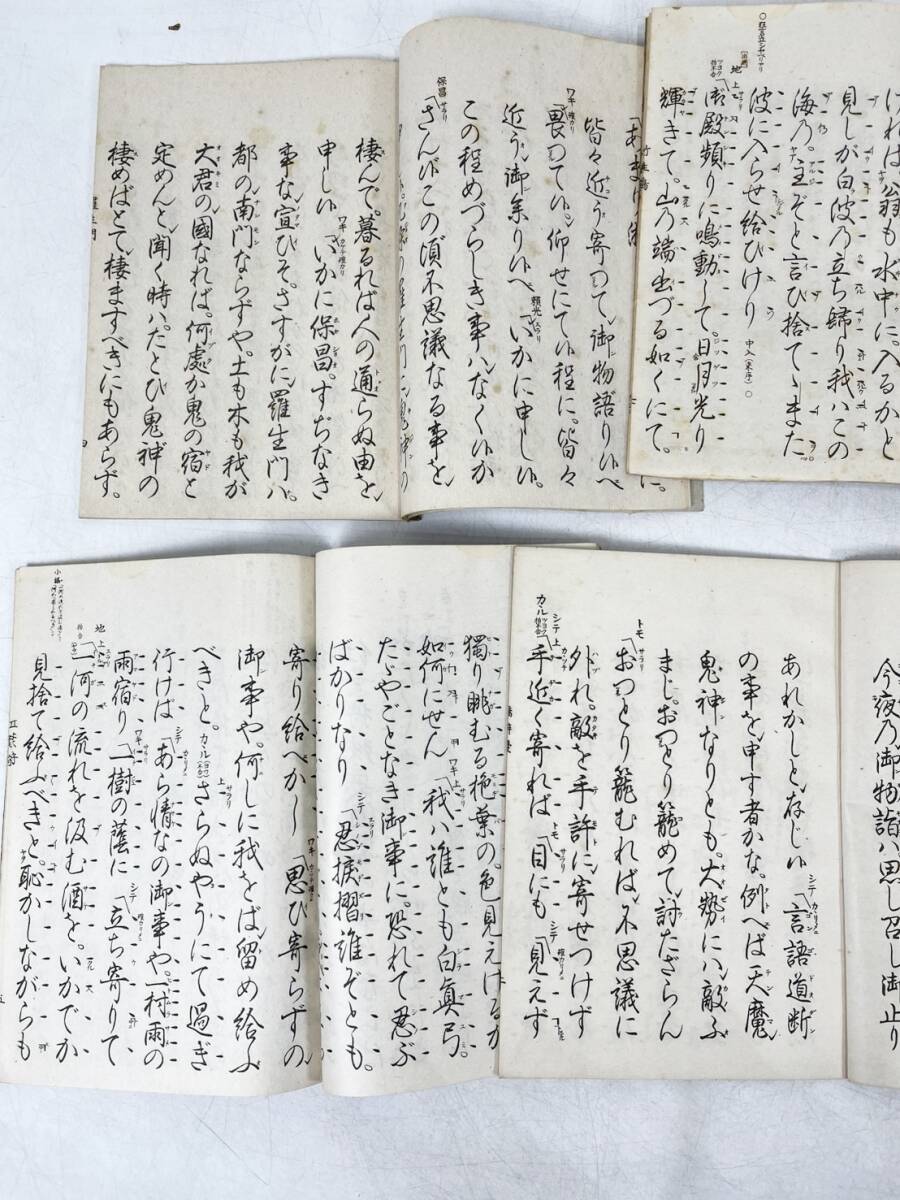 ければ翁も水中に。入るかと
見しが白波乃立ち歸り我ハこの
海乃。主ぞと言ひ捨てゝまた
波に入らせ給ひけり 中入(來序)
地 上 御殿頻りに鳴動して。日月光り
輝きて。山乃端出づる如くにて。
皆々近う寄つて、御物語りいへ
ワキ 畏つてい。仰せにてい程に。皆々
近う御参りいへ 頼光 いかに申しい。
この程めづらしき事ハなくいか
保昌 さんいこの頃不思議なる事を
棲んで。暮るれば人の通らぬ由を
申しい ワキ いかに保昌。すぢなき
事な宣ひそ。さすがに羅生門ハ。
都の南門ならずや。土も木も我が
大君の國なれば。何處か鬼の宿と
定めんと聞く時ハ。たとひ鬼神の
棲めばとて。棲ますべきにもあらず。
羅生門
四
今夜乃御物詣ハ思し召し御止り
あれかしと存じい シテ 言語道断
の事を申す者かな。例へば天魔
鬼神なりとも。大勢にハ敵ふ
まじ。おつとり籠めて。討たざらん
トモ おつとり籠むれば。不思議に
外れ。敵を手許に。寄せつけず
カヽル シテ 上 手近く寄れば トモ 目にも シテ 見えず
獨り眺むる梔葉の。色見えけるか
如何にせん ワキ 上 我ハ誰とも白眞弓
たゞやごとなき御事に。恐れて忍ぶ
ばかりなり シテ 忍捩摺誰ぞとも。
寄り給へかし ワキ 思ひ寄らずの
御事や。何しに我をば留め給ふ
べきと。カヽル 上 さらぬやうにて過ぎ
行けば シテ あら情なの御事や。一村雨の
雨宿り ワキ 一樹の蔭に シテ 立ち寄りて
地 上 一河の流れを汲む酒を。いかでか
見捨て給ふべきと。恥かしながらも
紅葉狩
五